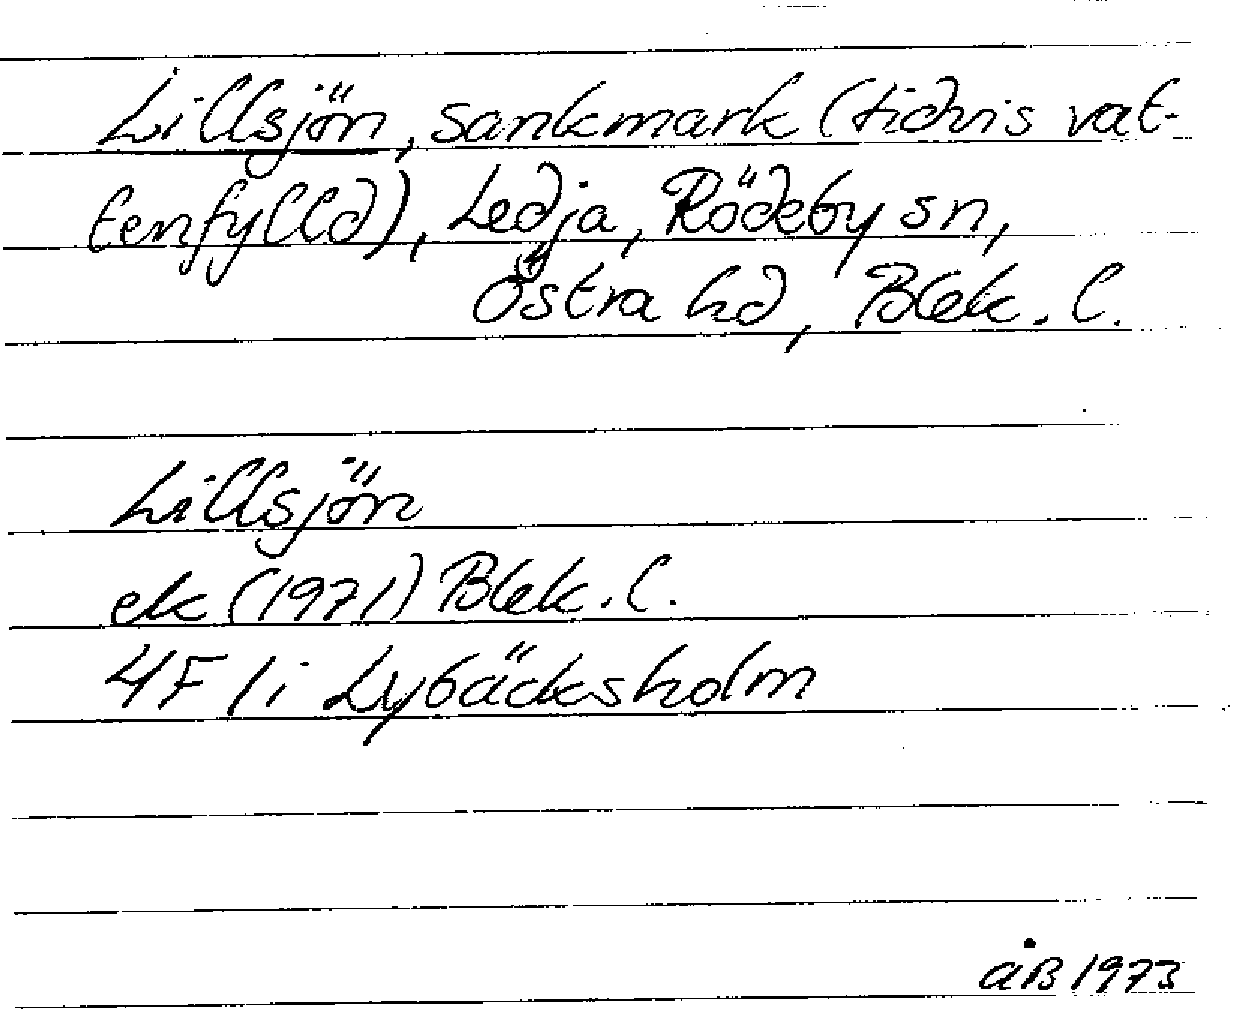 Lillsjön, sankmark (tidvis vat-
tenfylld), Ledja, Rödeby sn,
Östra hd, Blek. l.
Lillsjön
ek (1971) Blek. l.
4F 1i Lybäcksholm
åB 1973